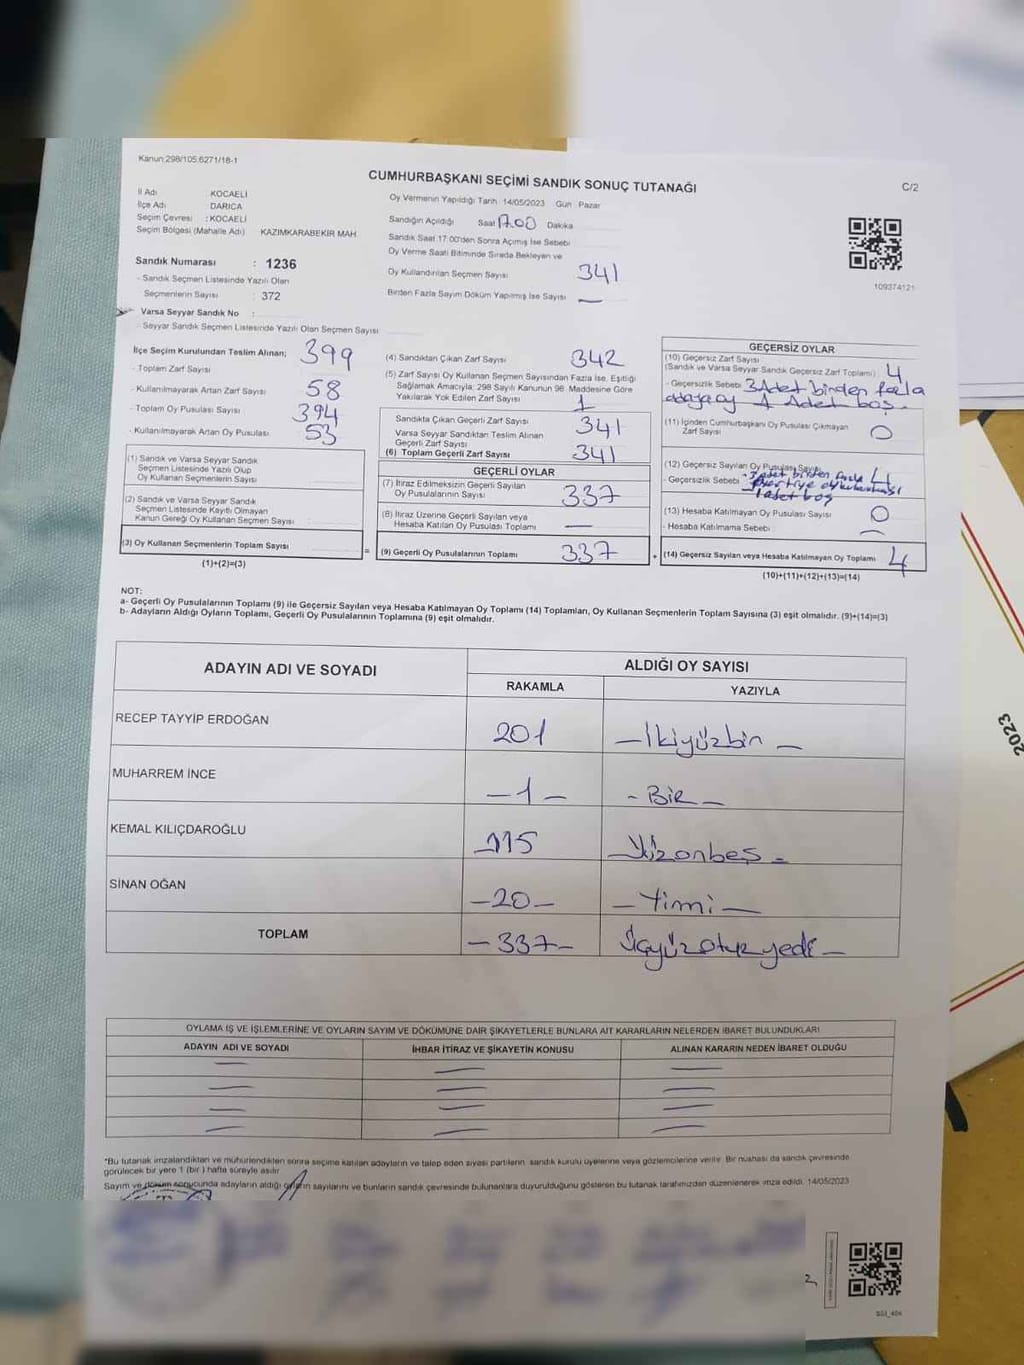 Kanun:298/105.6271/18-1
CUMHURBAŞKANI SEÇİMİ SANDIK SONUÇ TUTANAĞI
C/2
İl Adı : KOCAELİ
İlçe Adı : DARICA
Seçim Çevresi : KOCAELİ
Seçim Bölgesi (Mahalle Adı) KAZIMKARABEKİR MAH.
Sandık Numarası : 1236
- Sandık Seçmen Listesinde Yazılı Olan
Seçmenlerin Sayısı : 372
Varsa Seyyar Sandık No :
- Seyyar Sandık Seçmen Listesinde Yazılı Olan Seçmen Sayısı
Oy Vermenin Yapıldığı Tarih 14/05/2023 Gün Pazar
Sandığın Açıldığı Saat 17.00 Dakika
Sandık Saat 17:00'den Sonra Açımış İse Sebebi
Oy Verme Saati Bitiminde Sırada Bekleyen ve
Oy Kullandırılan Seçmen Sayısı 341
Birden Fazla Sayım Döküm Yapılmış İse Sayısı —
109374121
İlçe Seçim Kurulundan Teslim Alınan; 399
- Toplam Zarf Sayısı
- Kullanılmayarak Artan Zarf Sayısı 58
- Toplam Oy Pusulası Sayısı 394
- Kullanılmayarak Artan Oy Pusulası 53
(1) Sandık ve Varsa Seyyar Sandık
Seçmen Listesinde Yazılı Olup
Oy Kullanan Seçmenlerin Sayısı
(2) Sandık ve Varsa Seyyar Sandık
Seçmen Listesinde Kayıtlı Olmayan
Kanun Gereği Oy Kullanan Seçmen Sayısı
(3) Oy Kullanan Seçmenlerin Toplam Sayısı
(1)+(2)=(3)
=
(4) Sandıktan Çıkan Zarf Sayısı 342
(5) Zarf Sayısı Oy Kullanan Seçmen Sayısından Fazla İse, Eşitliği
Sağlamak Amacıyla; 298 Sayılı Kanunun 98. Maddesine Göre
Yakılarak Yok Edilen Zarf Sayısı 1
Sandıkta Çıkan Geçerli Zarf Sayısı 341
Varsa Seyyar Sandıktan Teslim Alınan
Geçerli Zarf Sayısı
(6) Toplam Geçerli Zarf Sayısı 341
GEÇERLİ OYLAR
(7) İtiraz Edilmeksizin Geçerli Sayılan
Oy Pusulalarının Sayısı 337
(8) İtiraz Üzerine Geçerli Sayılan veya
Hesaba Katılan Oy Pusulası Toplamı —
(9) Geçerli Oy Pusulalarının Toplamı 337
+
GEÇERSİZ OYLAR
(10) Geçersiz Zarf Sayısı
(Sandık ve Varsa Seyyar Sandık Geçersiz Zarf Toplamı) 4
- Geçersizlik Sebebi 3 Adet birden fazla
adaya oy 1 Adet boş.
(11) İçinden Cumhurbaşkanı Oy Pusulası Çıkmayan
Zarf Sayısı 0
(12) Geçersiz Sayılan Oy Pusulası Sayısı 4
- Geçersizlik Sebebi - 3 adet birden fazla
partiye oy
- 1 adet boş
(13) Hesaba Katılmayan Oy Pusulası Sayısı 0
- Hesaba Katılmama Sebebi —
(14) Geçersiz Sayılan veya Hesaba Katılmayan Oy Toplamı 4
(10)+(11)+(12)+(13)=(14)
NOT:
a- Geçerli Oy Pusulalarının Toplamı (9) ile Geçersiz Sayılan veya Hesaba Katılmayan Oy Toplamı (14) Toplamları, Oy Kullanan Seçmenlerin Toplam Sayısına (3) eşit olmalıdır. (9)+(14)=(3)
b- Adayların Aldığı Oyların Toplamı, Geçerli Oy Pusulalarının Toplamına (9) eşit olmalıdır.
ADAYIN ADI VE SOYADI
ALDIĞI OY SAYISI
RAKAMLA YAZIYLA
RECEP TAYYİP ERDOĞAN 201 — İkiyüzbin —
MUHARREM İNCE — 1 — - BİR —
KEMAL KILIÇDAROĞLU 115 Yüzonbeş -
SİNAN OĞAN — 20 — — Yirmi —
TOPLAM — 337 — Üçyüzotuzyedi —
OYLAMA İŞ VE İŞLEMLERİNE VE OYLARIN SAYIM VE DÖKÜMÜNE DAİR ŞİKAYETLERLE BUNLARA AİT KARARLARIN NELERDEN İBARET BULUNDUKLARI
ADAYIN ADI VE SOYADI İHBAR İTİRAZ VE ŞİKAYETİN KONUSU ALINAN KARARIN NEDEN İBARET OLDUĞU
*Bu tutanak imzalandıktan ve mühürlendikten sonra seçime katılan adayların ve talep eden siyasi partilerin, sandık kurulu üyelerine veya gözlemcilerine verilir. Bir nüshası da sandık çevresinde
görülecek bir yere 1 (bir ) hafta süreyle asılır
Sayım ve döküm sonucunda adayların aldığı oyların sayılarını ve bunların sandık çevresinde bulunanlara duyurulduğunu gösteren bu tutanak tarafımızdan düzenlenerek imza edildi. 14/05/2023
2023